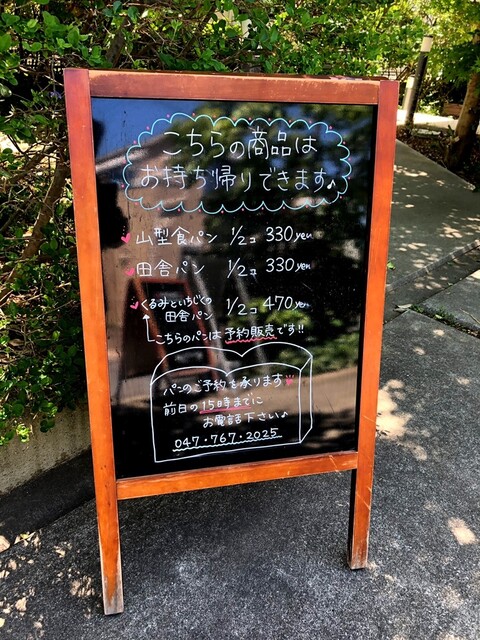 こちらの商品は
お持ち帰りできます♪
山型食パン 1/2コ 330yen
田舎パン 1/2コ 330yen
くるみといちじくの
田舎パン 1/2コ 470yen
こちらのパンは予約販売です!!
パンのご予約を承ります
前日の15時までに
お電話下さい♪
047・767・2025